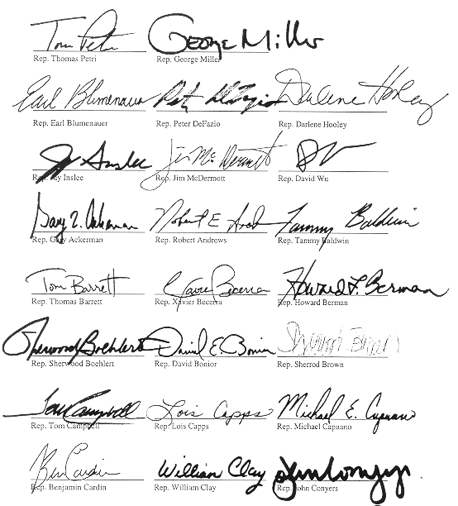 Tom Petri George Miller
Rep. Thomas Petri Rep. George Miller
Earl Blumenauer Peter DeFazio Darlene Hooley
Rep. Earl Blumenauer Rep. Peter DeFazio Rep. Darlene Hooley
Jay Inslee Jim McDermott
Rep. Jay Inslee Rep. Jim McDermott Rep. David Wu
Gary L. Ackerman Robert E. Andrews Tammy Baldwin
Rep. Gary Ackerman Rep. Robert Andrews Rep. Tammy Baldwin
Tom Barrett Xavier Becerra Howard L. Berman
Rep. Thomas Barrett Rep. Xavier Becerra Rep. Howard Berman
Sherwood Boehlert David E. Bonior Sherrod Brown
Rep. Sherwood Boehlert Rep. David Bonior Rep. Sherrod Brown
Tom Campbell Lois Capps Michael E. Capuano
Rep. Tom Campbell Rep. Lois Capps Rep. Michael Capuano
Ben Cardin William Clay John Conyers
Rep. Benjamin Cardin Rep. William Clay Rep. John Conyers